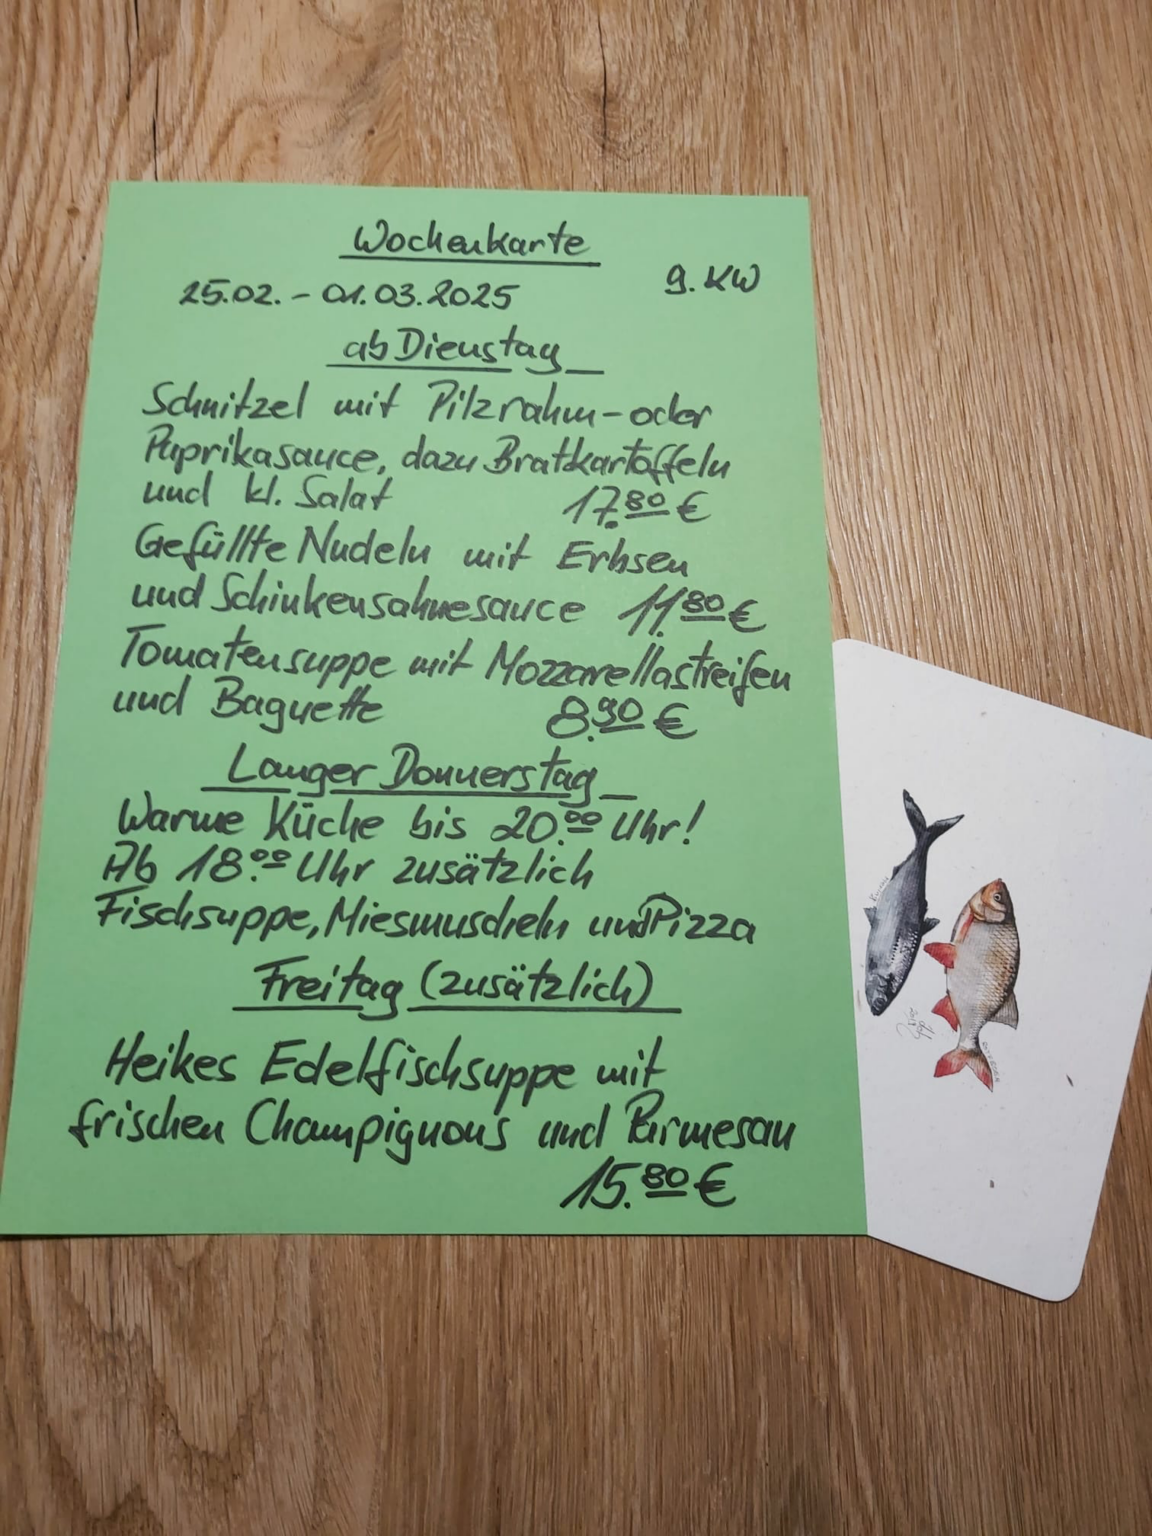 Wochenkarte
25.02. - 01.03.2025 9. KW
ab Dienstag
Schnitzel mit Pilzrahm- oder
Paprikasauce, dazu Bratkartoffeln
und kl. Salat 17.80 €
Gefüllte Nudeln mit Erbsen
und Schinkensahnesauce 11.80 €
Tomatensuppe mit Mozzarellastreifen
und Baguette 8.90 €
Langer Donnerstag
Warme Küche bis 20.00 Uhr!
Ab 18.00 Uhr zusätzlich
Fischsuppe, Miesmuscheln und Pizza
Freitag (zusätzlich)
Heikes Edelfischsuppe mit
frischen Champignons und Parmesan
15.80 €